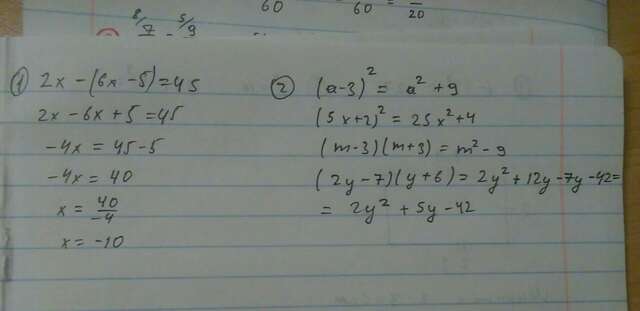 60
60 = — 20
8/7 - 5/9
① 2x - (6x - 5) = 45
2x - 6x + 5 = 45
-4x = 45 - 5
-4x = 40
x = 40/-4
x = -10
② (a-3)² = a² + 9
(5x+2)² = 25x² + 4
(m-3)(m+3) = m² - 9
(2y-7)(y+6) = 2y² + 12y - 7y - 42 =
= 2y² + 5y - 42